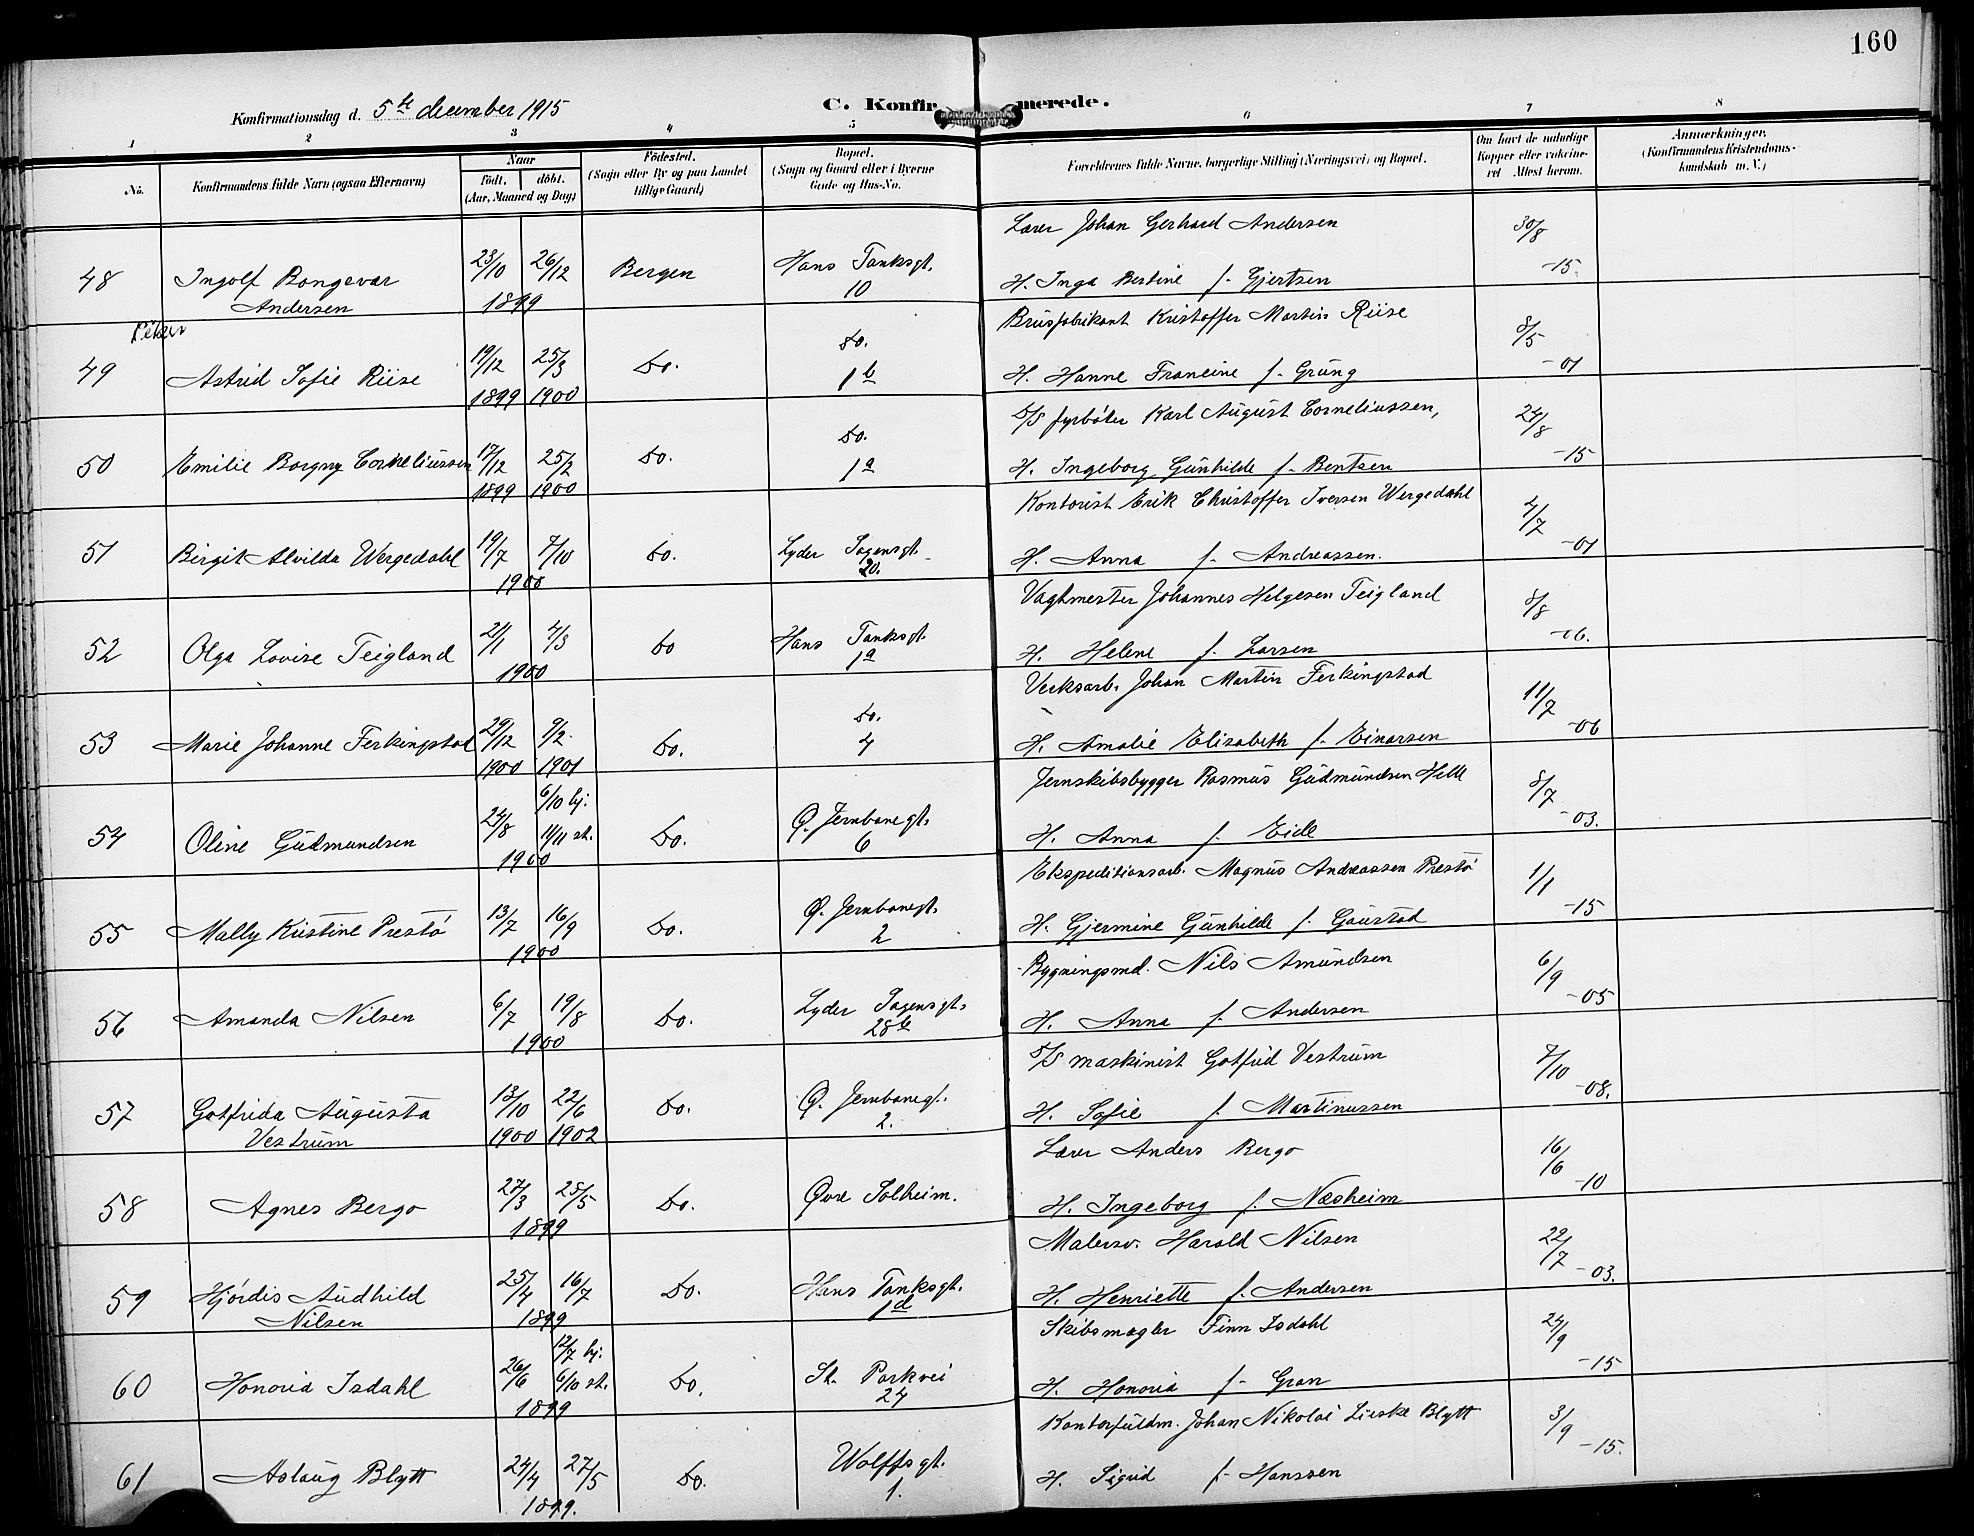 160
Konfirmationsdag d. 5te december 1915 C. Konfirmerede.
1 2 3 4 5 6 7 8
No. Konfirmandens fulde Navn (ogsaa Efternavn) Naar Födt. döbt. (Aar, Maaned og Dag) Födested. (Sogn eller By og paa Landet tillige Gaard) Bopæl. (Sogn og Gaard eller i Byerne Gade og Hus-No. Forældrenes fulde Navne, borgerlige Stilling (Næringsvei) og Bopæl. Om havt de naturlige Kopper eller vaccineret Attest herom. Anmærkninger. (Konfirmandens Kristendomskundskab m. V.)
Lærer Johan Gerhard Andersen 30/8
48 Ingolf Bongevar 23/10 26/12 Bergen Hans Tanksgt. H. Inga Bertine f. Gjertsen -15.
Andersen 1899 10
Piker
Brusfabrikant Kristoffer Martin Riise 8/5
49 Astrid Sofie Riise 19/12 25/3 do. do. H. Hanne Francine f. Grung -01
1899 1900 1b
D/S fyrböter Karl August Corneliussen, 24/8
50 Emilie Borgny Corneliussen 17/12 25/2 do. do. H. Ingeborg Gunhilde f. Bentsen -15
1899 1900 1a
Kontorist Erik Christoffer Iversen Wergedahl 4/7
51 Birgit Alvilda Wergedahl 19/7 7/10 do. Lyder Sagensgt. H. Anna f. Andreassen. -01
1900 20.
Vagtmester Johannes Helgesen Teigland 8/8
52 Olga Lovise Teigland 21/1 4/3 do Hans Tanksgt. H. Helene f. Larsen -06.
1900 1a
Verksarb. Johan Martin Ferkingstad 11/7
53 Marie Johanne Ferkingstad 29/12 9/2 do. do. H. Amalie Elisabeth f. Einarsen -06
1900 1901 4
Jernskibsbygger Rasmus Gudmundsen Helle 8/7
54 Oline Gudmundsen 24/8 6/10 hj: 11/11 st. do. Ø. Jernbanegt. H. Anna f. Eide -03.
1900 6
Ekspeditionsarb. Magnus Andreassen Prestö 1/1
55 Mally Kristine Prestö 13/7 16/9 do. Ø. Jernbanegt. H. Gjermine Gunhilde f. Gaustad -15
1900 2
Bygningsmd. Nils Amundsen 6/9
56 Amanda Nilsen 6/7 19/8 do. Lyder Sagensgt. H. Anna f. Andersen -05
1900 28b
D/S maskinist Gotfrid Vestrum 7/10
57 Gotfrida Augusta 13/10 22/6 do. Ø. Jernbanegt. H. Sofie f. Martinussen -08.
Vestrum 1900 1902 2.
Lærer Anders Bergo 16/6
58 Agnes Bergo 27/3 25/5 do. Øvre Solheim. H. Ingeborg f. Næsheim -10
1899
Malersv. Harald Nilsen 22/7
59 Hjördis Audhild 25/4 16/7 do. Hans Tanksgt. H. Henriette f. Andersen -03.
Nilsen 1899 1d
Skibsmægler Finn Isdahl 24/9
60 Honoria Isdahl 26/6 12/7 hj: 6/10 st. do. St. Parkvei H. Honoria f. Gran -15
1899 24
Kontorfuldm. Johan Nikolai Lieske Blytt 3/9
61 Aslaug Blytt 24/4 27/5 do. Wolffsgt. H. Sigrid f. Hanssen -15.
1899. 1.